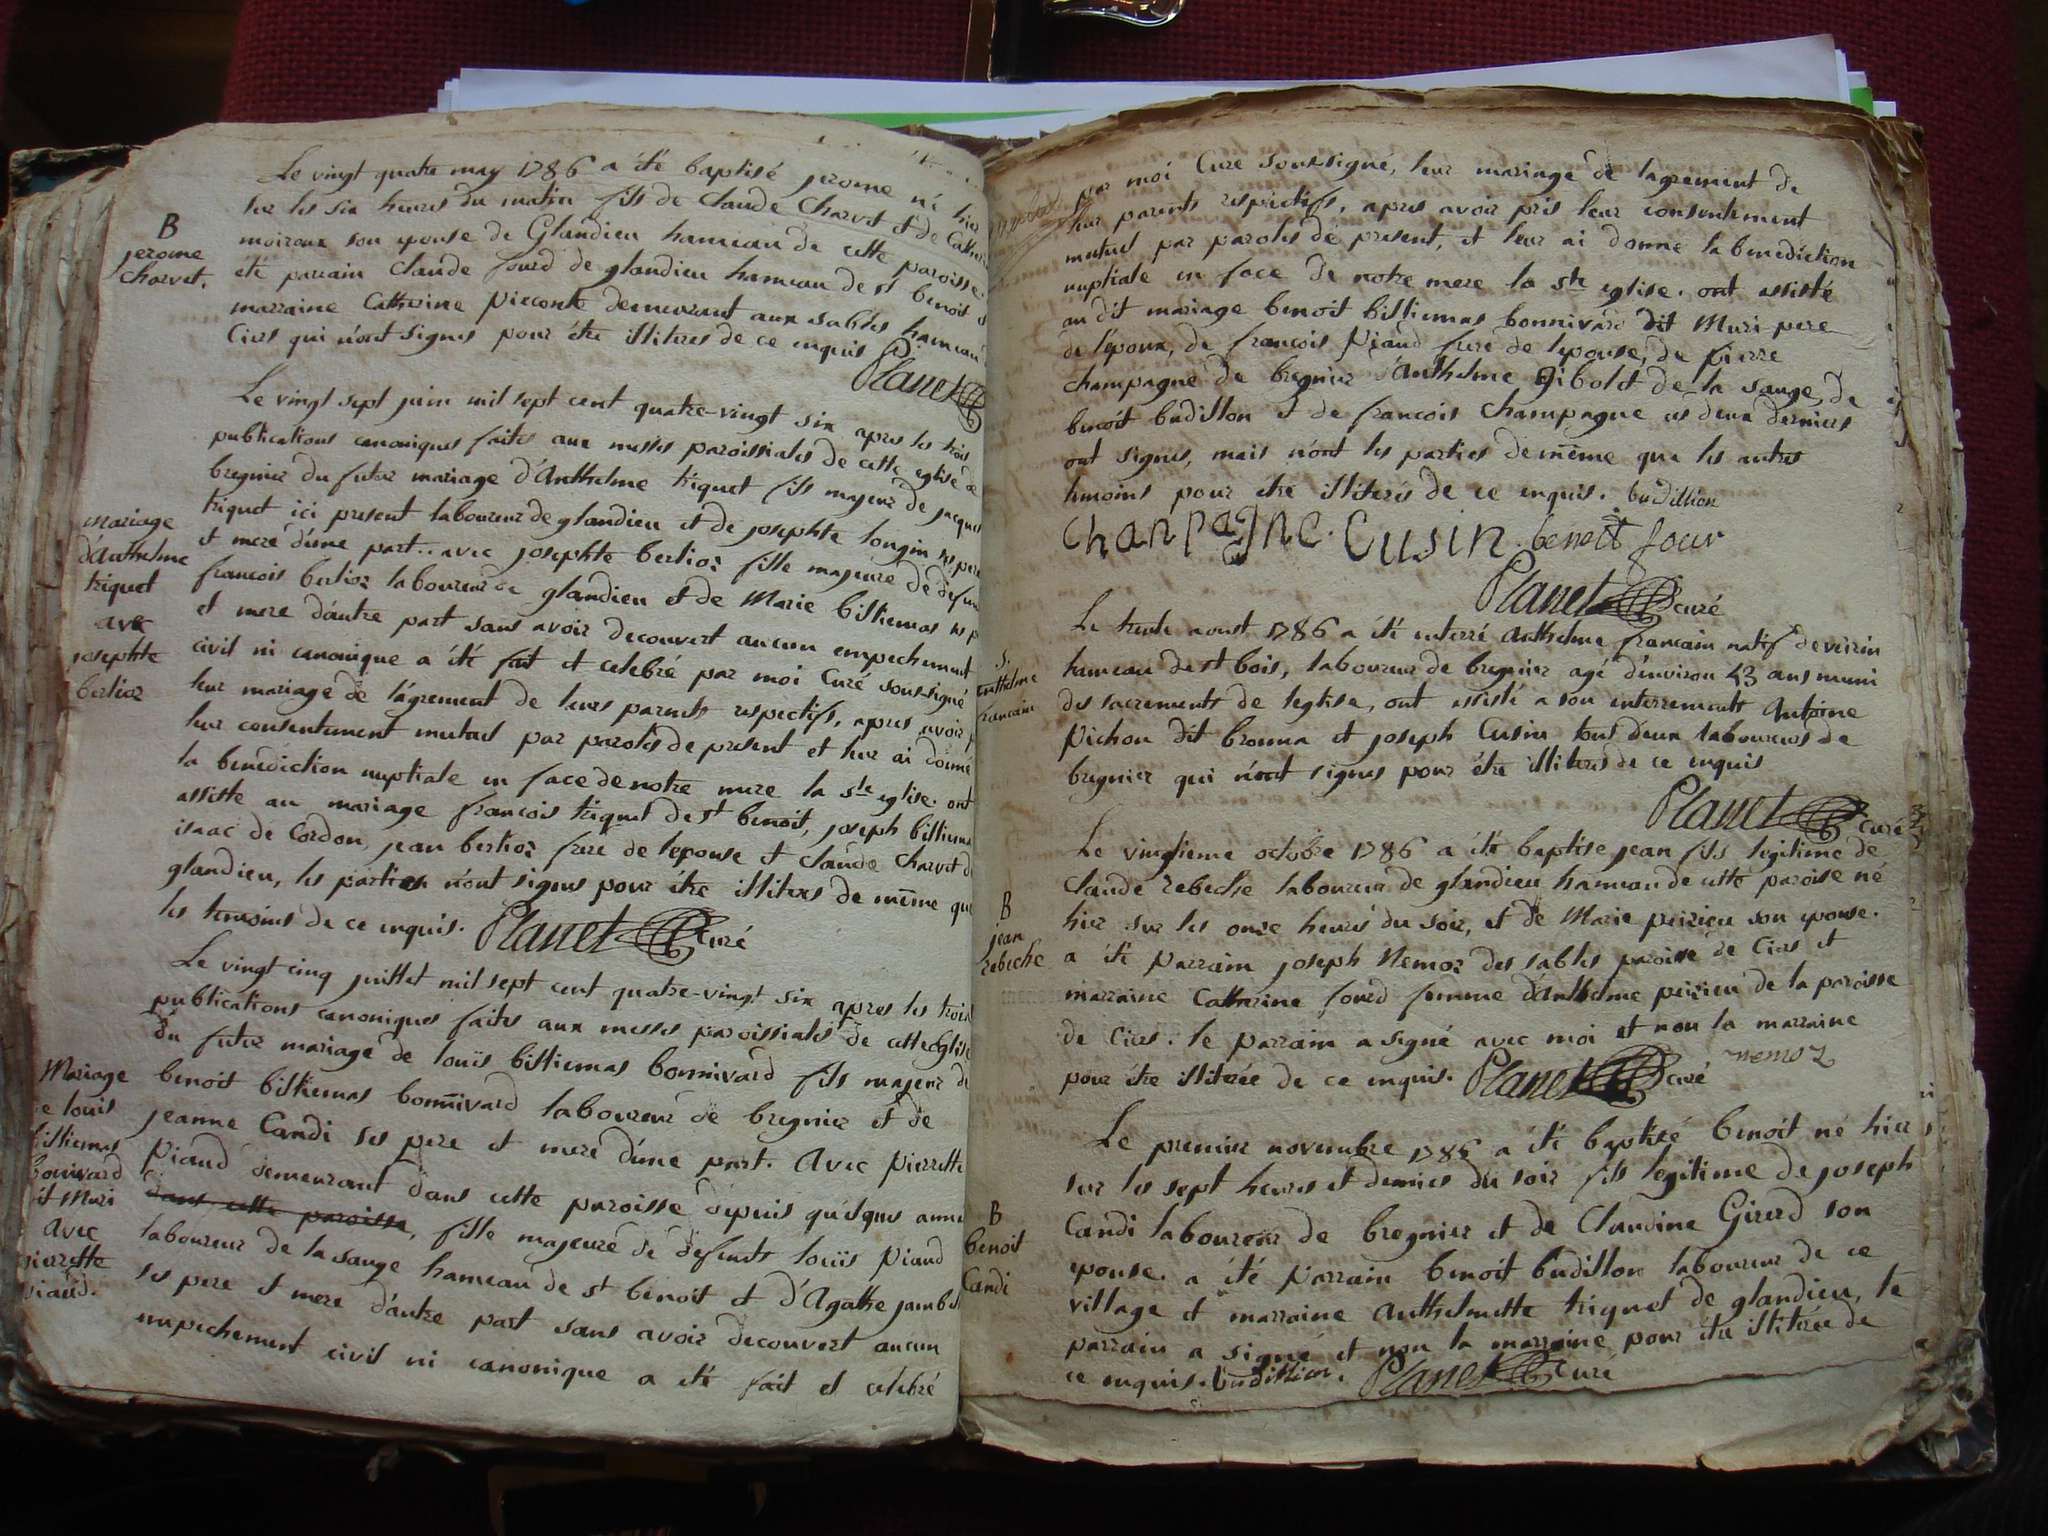 Le vingt quatre may 1786 a été baptisé jerome né hier
sur les six heures du matin fils de Claude Charvet et de Cathe
moiroux son epouse de Glandieu hameau de cette paroisse.
été parrain Claude fourd de glandieu hameau de st benoit
marraine Catherine demeurant aux sables hameau
Cirs qui n'ont signés pour être illiteres de ce enquis
Planet
B
jerome
Charvet.
Le vingt sept juin mil sept cent quatre-vingt six apres les trois
publications canoniques faites aux messes paroissiales de cette eglise de
bregnier du futur mariage d'Anthelme triquet fils majeur de jacques
triquet ici present laboureur de glandieu et de josephte longin ses pere
et mere d'une part.. avec josephte berlioz fille majeure de defun
francois berlioz laboureur de glandieu et de Marie billiemas ses p
et mere d'autre part sans avoir decouvert aucun empechement
civil ni canonique a été fait et celebré par moi Curé soussigné
leur mariage de l'agrement de leurs parents respectifs, apres avoir p
leur consentement mutuel par paroles de present et leur ai donné
la benediction nuptiale en face de notre mere la ste eglise. ont
assisté au mariage francois triquet de st benoit, joseph billiema
isaac de Cordon, jean berlioz frere de l'epouse et claude Charvet d
glandieu, les parties n'ont signés pour être illiteres de même que
les temoins de ce enquis. Planet curé
mariage
d'Anthelme
triquet
avec
josephte
berlioz
Le vingt cinq juillet mil sept cent quatre-vingt six apres les trois
publications canoniques faites aux messes paroissiales de cette Eglise
du futur mariage de louis billiemas bonnivard fils majeur de
benoit billiemas bonnivard laboureur de bregnier et de
jeanne Candi ses pere et mere d'une part. avec pierrette
Piaud demeurant dans cette paroisse depuis quelques anné
dans cette paroisse, fille majeure de defunts louis Piaud
laboureur de la sauge hameau de st benoit et d'Agathe jambet
ses pere et mere d'autre part sans avoir decouvert aucun
empechement civil ni canonique a été fait et celebré
Mariage
e louis
billiemas
bonivard
it Muri
avec
pierrette
piaud.
par moi Curé soussigné, leur mariage de l'agrement de
leur parents respectifs, apres avoir pris leur consentement
mutuel par paroles de present, et leur ai donné la benediction
nuptiale en face de notre mere la ste eglise. ont assisté
au dit mariage benoit billiemas bonnivard dit Muri pere
de l'epoux, de francois Piaud frere de l'epouse, de pierre
champagne de bregnier d'Anthelme Gibolet de la sauge, de
benoit budillon et de francois Champagne ces deux derniers
ont signés, mais n'ont les parties de même que les autres
temoins pour être illiterés de ce enquis. budillion
Chanpagne. Cusin. beneit four
Planet curé
Le trente aoust 1786 a été enterré Anthelme francain natif de veirin
hameau de st bois, laboureur de bregnier agé d'environ 43 ans muni
des sacrements de l'eglise, ont assisté a son enterrement Antoine
Pichon dit bronna et joseph Cusin tous deux laboureurs de
bregnier qui n'ont signés pour être illiteres de ce enquis
Planet curé
S.
anthelme
francain
Le vingtieme octobre 1786 a été baptisé jean fils legitime de
Claude rebeche laboureur de glandieu hameau de cette paroisse né
hier sur les onze heures du soir, et de Marie peirieu son epouse.
a été parrain joseph Nemoz des sables paroisse de Cirs et
marraine Catherine fourd femme d'Anthelme peirieu de la paroisse
de Cirs. le parrain a signé avec moi et non la marraine
pour être illiterée de ce enquis. Planet curé nemoz
B
jean
rebeche
Le premier novembre 1786 a été baptisé benoit né hier
sur les sept heures et demies du soir fils legitime de joseph
Candi laboureur de bregnier et de Claudine Girerd son
epouse. a été parrain benoit budillon laboureur de ce
village et marraine Anthelmette triquet de glandieu, le
parrain a signé et non la marraine pour être illiterée de
ce enquis. budillion. Planet curé
B
benoit
Candi